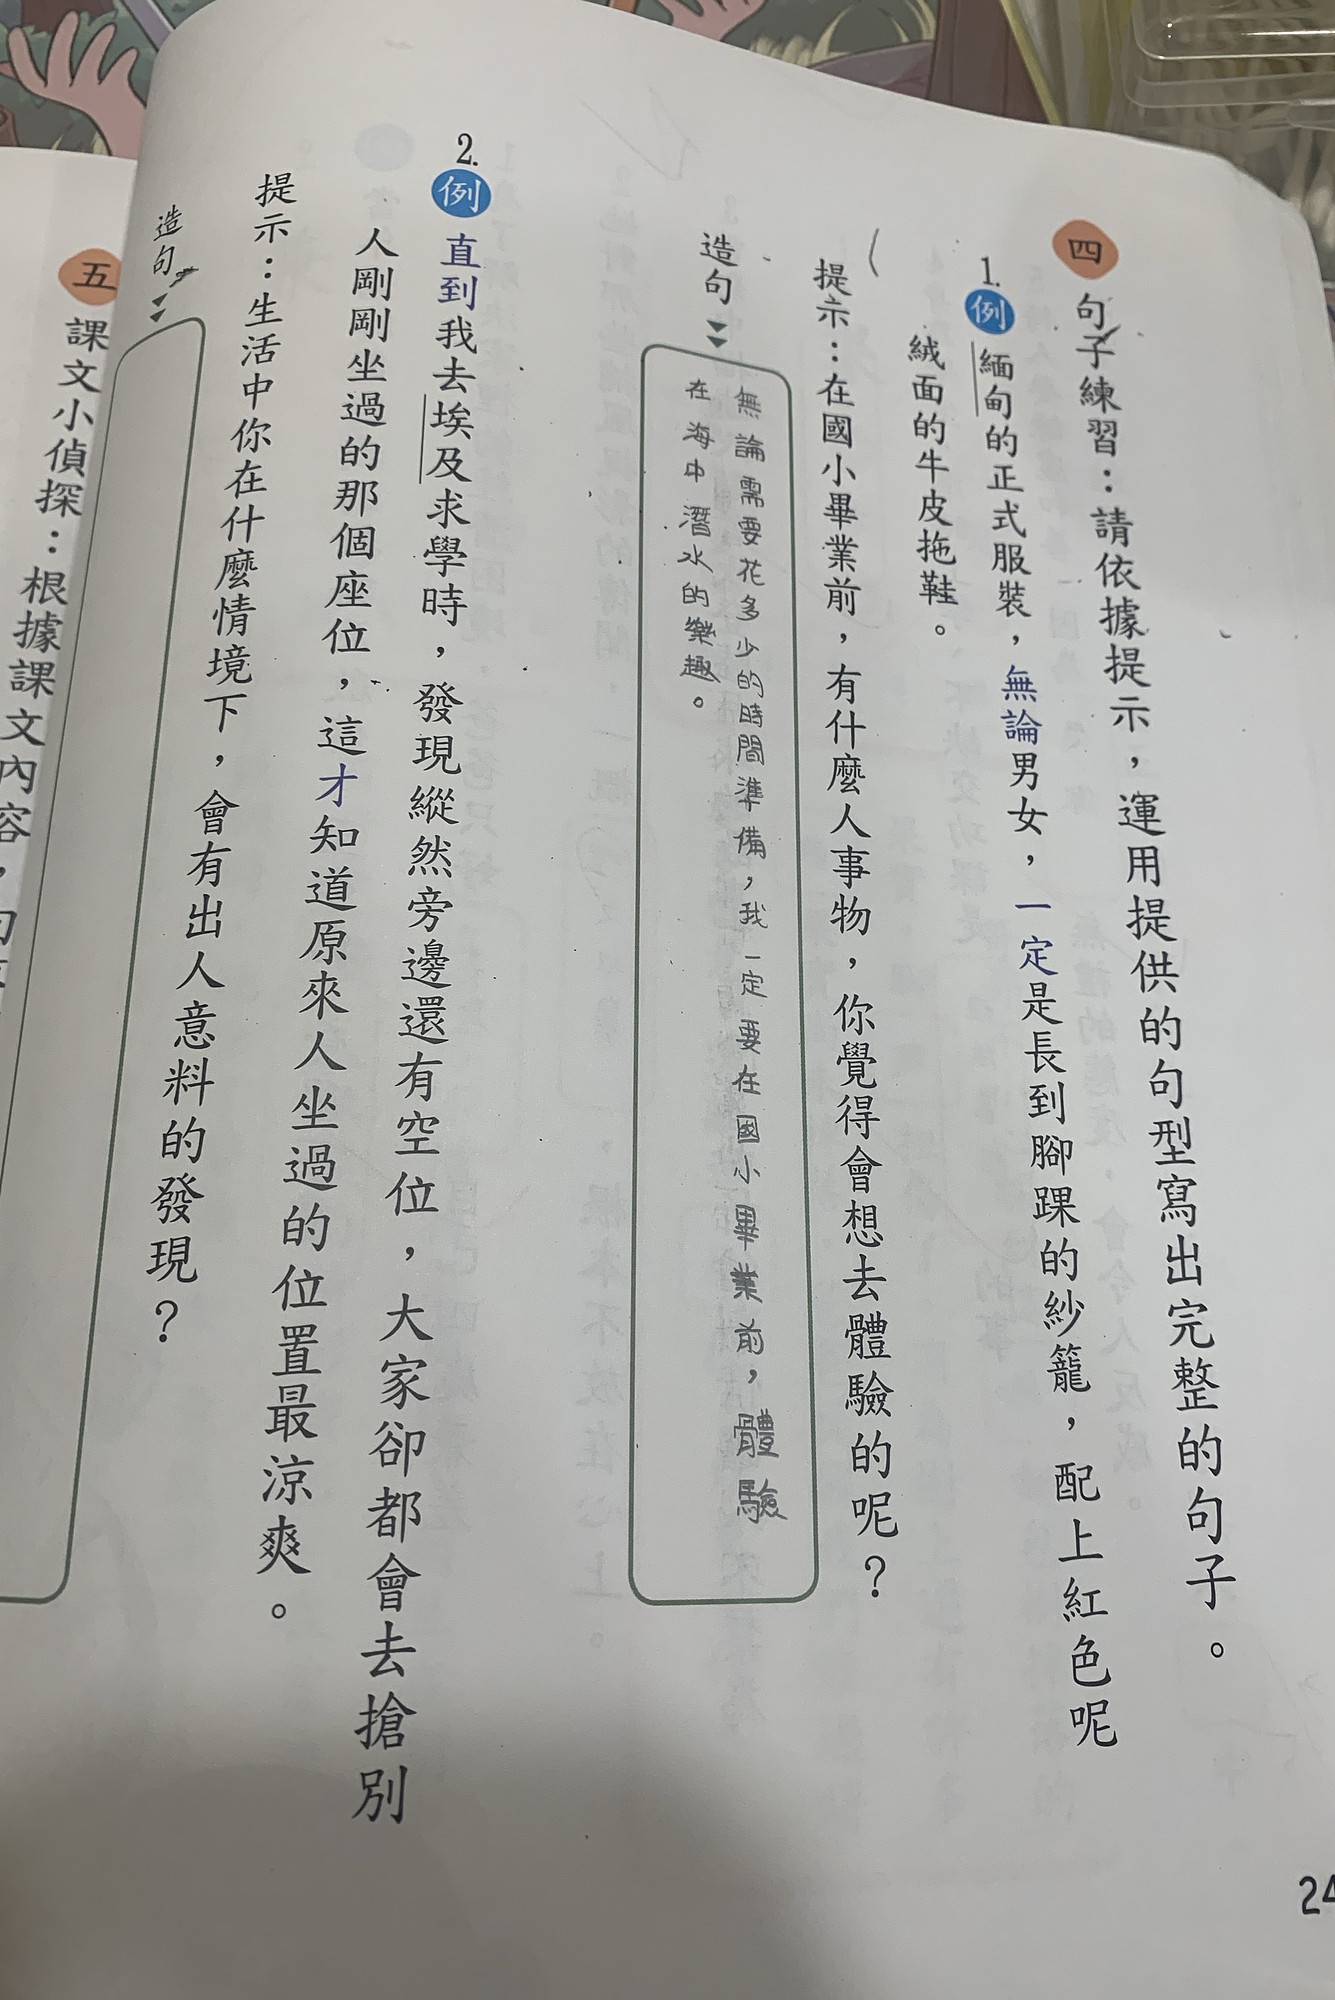 四 句子練習：請依據提示，運用提供的句型寫出完整的句子。
1. 例 緬甸的正式服裝，無論男女，一定是長到腳踝的紗籠，配上紅色呢
絨面的牛皮拖鞋。
提示：在國小畢業前，有什麼人事物，你覺得會想去體驗的呢？
造句
無論需要花多少的時間準備，我一定要在國小畢業前，體驗
在海中潛水的樂趣。
2. 例 直到我去埃及求學時，發現縱然旁邊還有空位，大家卻都會去搶別
人剛剛坐過的那個座位，這才知道原來人坐過的位置最涼爽。
提示：生活中你在什麼情境下，會有出人意料的發現？
造句
五 課文小偵探：根據課文內容，
24